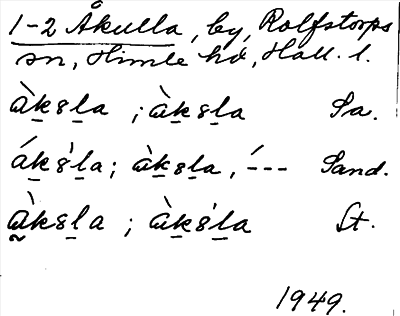 1-2 Åkulla, by, Rolfstorps
sn, Himle hd, Hall. l.
àk̲s̲l̲a ; àk̲s̲l̲a Sa.
ák̲s̲'l̲a ; àk̲s̲l̲a, ´--- Sand.
àk̲s̲l̲a ; àk̲s̲'l̲a St.
1949.